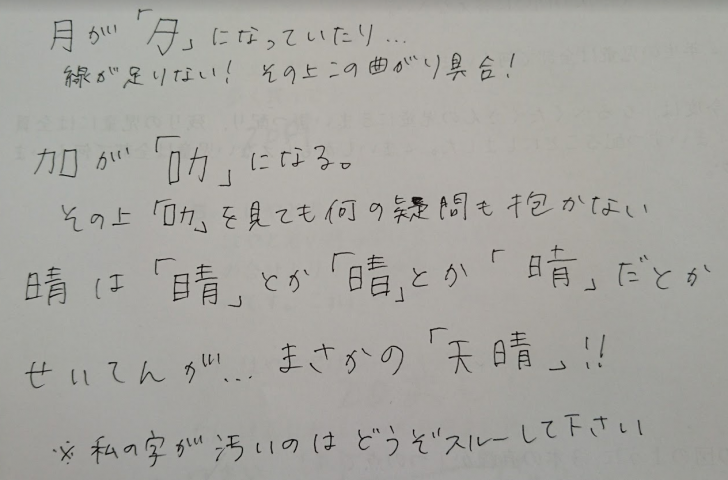 月が「月」になっていたり…
線が足りない! その上この曲がり具合!
加が「叻」になる。
その上「叻」を見ても何の疑問も抱かない
晴は「晴」とか「晴」とか「晴」だとか
せいてんが… まさかの「天晴」!!
※私の字が汚いのはどうぞスルーして下さい